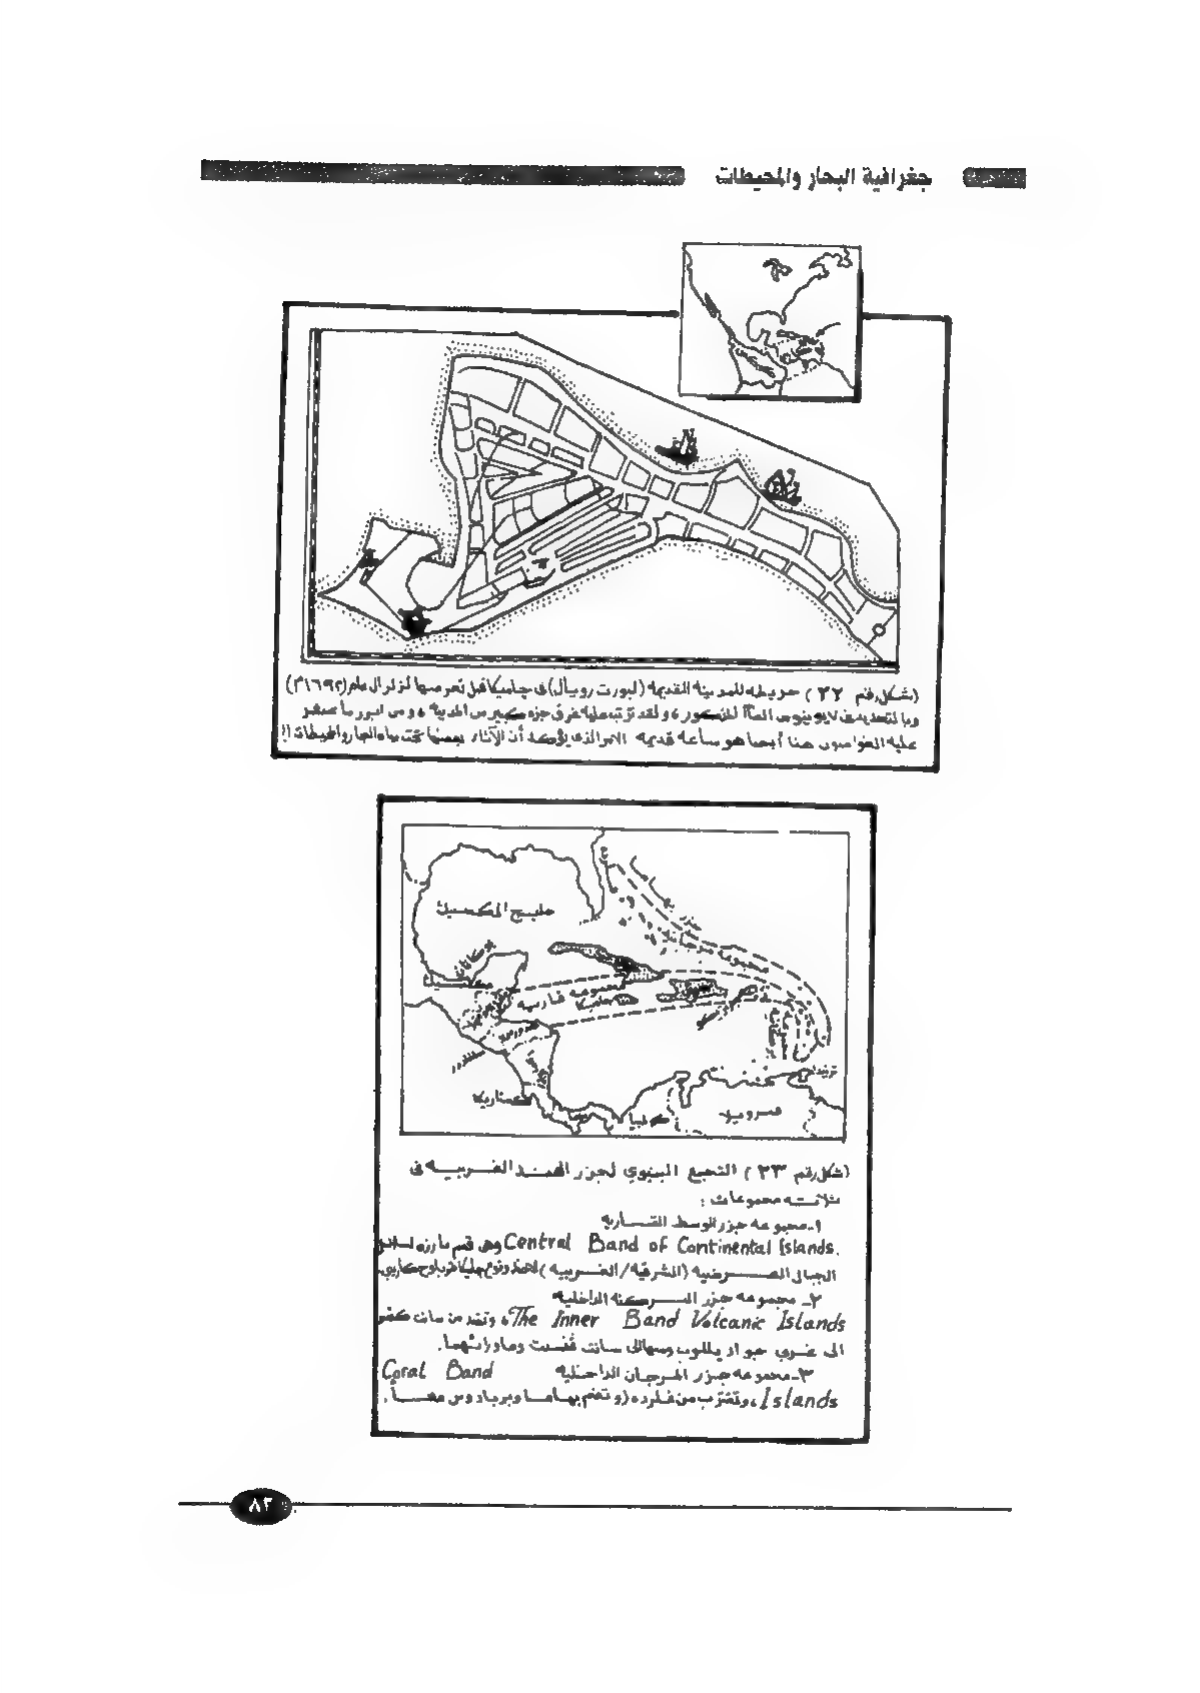 جغرافية البحار والمحيطات
(شكل رقم ٣٢) خريطه للمدينه القديمه (لبورت رويال) فى جاميكا قبل تعرضها لزلزال عام (١٦٩٢م)
وبالتحديد فى ٧ يونيو من العام المذكور، ولقد ترتب عليه غرق جزء كبير من المدينه، ومن ابرز ما عثر
عليه الغواصون هنا أيضا هو ساعه قديمه الامر الذى يؤكد أن الآثار بعضها تحت مياه البحار والمحيطات!!
خليج المكسيك
يوكاتان
مجموعه قاريه
جاميكا
كستاريكا
كولمبيا
ترنداد
(شكل رقم ٣٣) التجمع البنيوي لجزر الهند الغربيه فى
ثلاثه مجموعات :
١- مجموعه جزر الوسط القاريه
Central Band of Continental Islands. وهى قمم بارزه لسلاسل
الجبال العرضيه (الشرقيه/الغربيه)
٢- مجموعه جزر البركنه الداخليه
The Inner Band Volcanic Islands، وتمتد من سانت كتس
الى غربي جوادلوب وسهالى سانت فنسنت وماورائهما.
٣- مجموعه جزر المرجان الداخليه Coral Band
Islands، وتقترب من فلوردا (وتضم بهاما وبربادوس معاً.
٨٢